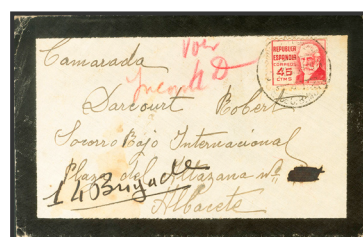 Voir
Camarada
REPUBLICA
ESPAÑOLA
CORREOS
45
CTMS
Darcourt Robert
Socorro Rojo Internacional
Plaza del Altazana nº
14 Brigade
Albacete